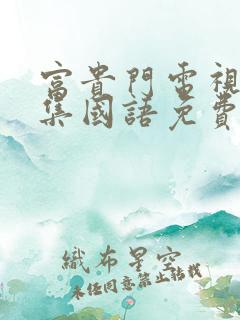 富貴門電視
集國語免費
織布星空
未经同意禁止转载